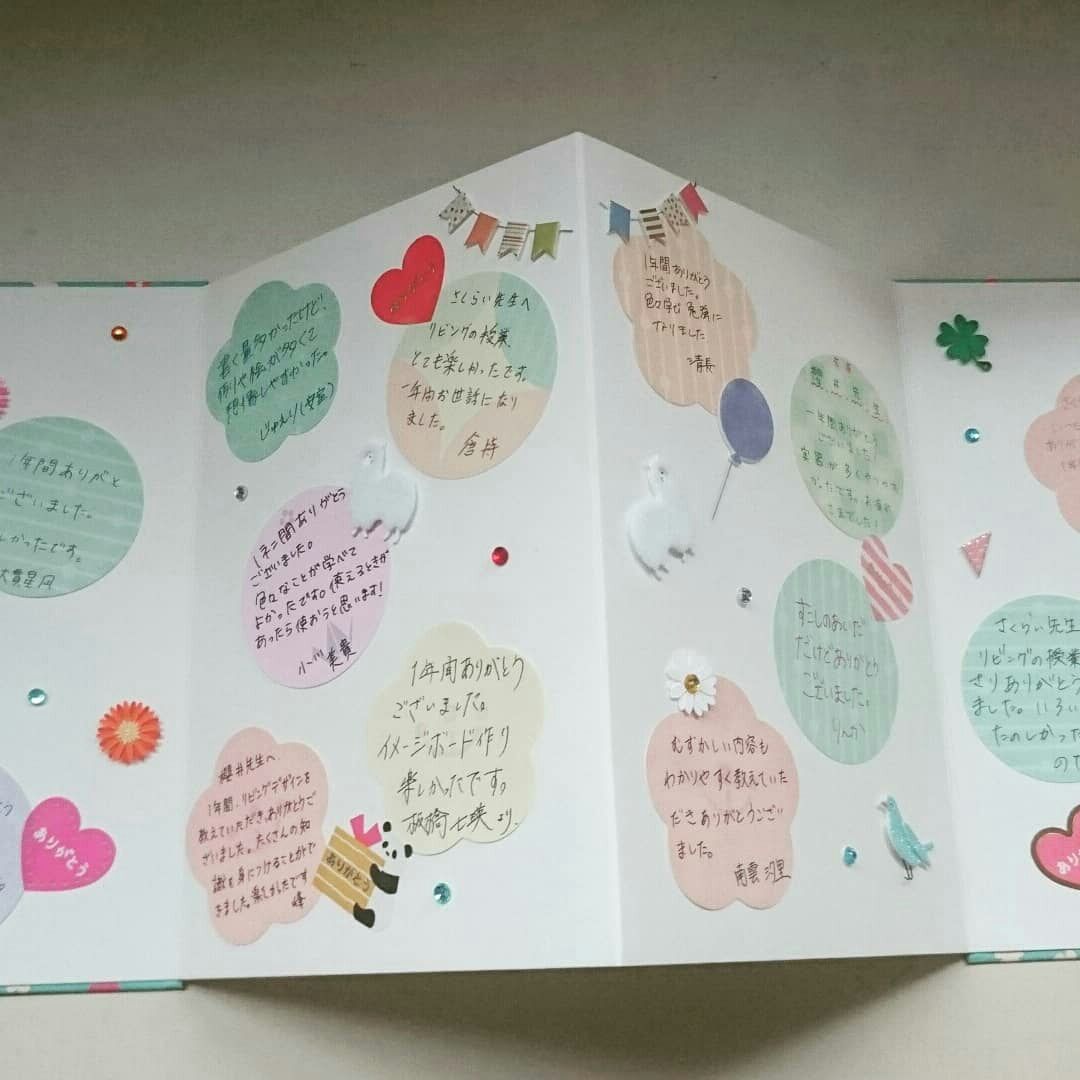 1年間ありがと
ございました。
しかったです。
大貫星月
ありがとう
書く量多かったけど、
例や絵が多くて
想像しやすかった。
じゅえり(安富)
ありがとう
さくらい先生へ
リビングの授業
とても楽しかったです。
一年間お世話になり
ました。
倉持
1年間ありがとう
ございました。
色々なことが学べて
よかったです。使えるときが
あったら使おうと思います!
美貴
1年間ありがとう
ございました。
イメージボード作り
楽しかったです。
板橋七瑛より
櫻井先生へ
1年間、リビングデザインを
教えていただき、ありがとうご
ざいました。たくさんの知
識を身につけることがで
きました。楽しかったです
峰
ありがとう
1年間ありがとう
ございました。
色々学び勉強に
なりました
清長
櫻井先生
一年間ありがとう
ございました!
実習が多くやりやす
かったです。お世話
さまでした!
すこしのあいだ
だけどありがとう
ございました。
りんか
むずかしい内容も
わかりやすく教えていた
だきありがとうござい
ました。
南雲
さくらい先生
リビングの授業
さりありがとう
ました。いろい
たのしかった